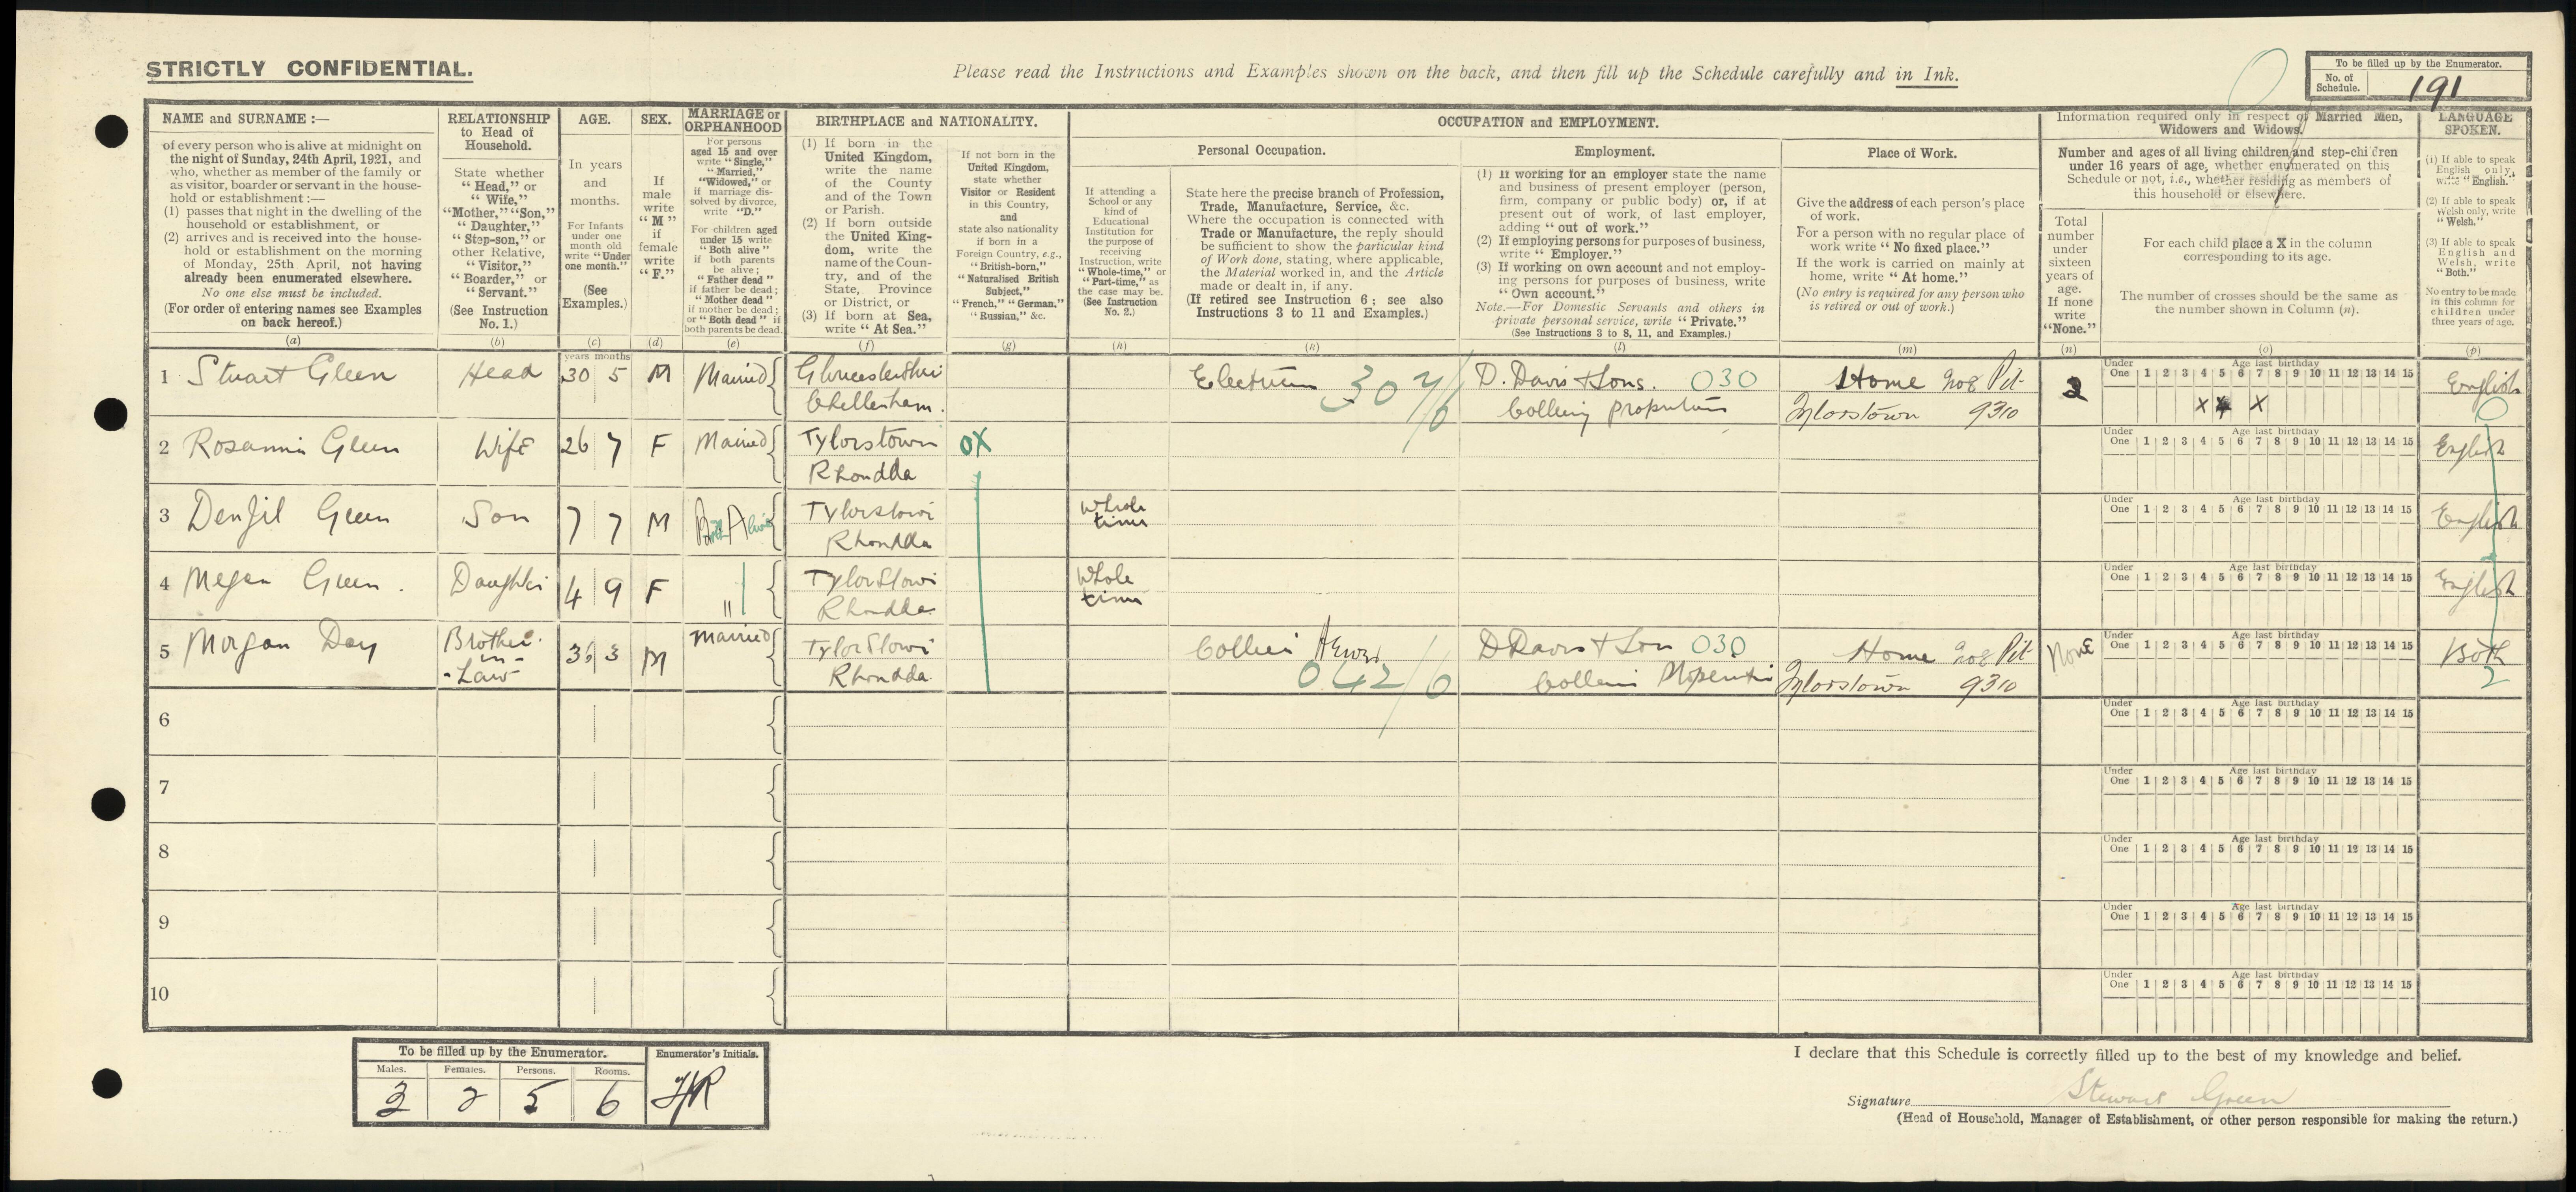 STRICTLY CONFIDENTIAL.
Please read the Instructions and Examples shown on the back, and then fill up the Schedule carefully and in Ink.
To be filled up by the Enumerator.
No. of Schedule. 191
NAME and SURNAME :—
of every person who is alive at midnight on
the night of Sunday, 24th April, 1921, and
who, whether as member of the family or
as visitor, boarder or servant in the house-
hold or establishment :—
(1) passes that night in the dwelling of the
household or establishment, or
(2) arrives and is received into the house-
hold or establishment on the morning
of Monday, 25th April, not having
already been enumerated elsewhere.
No one else must be included.
(For order of entering names see Examples
on back hereof.)
(a)
RELATIONSHIP
to Head of
Household.
State whether
"Head," or
"Wife,"
"Mother," "Son,"
"Daughter,"
"Step-son," or
other Relative,
"Visitor,"
"Boarder," or
"Servant."
(See Instruction
No. 1.)
(b)
AGE.
In years
and
months.
For Infants
under one
month old
write "Under
one month."
(See
Examples.)
(c)
SEX.
If
male
write
"M"
if
female
write
"F."
(d)
MARRIAGE or
ORPHANHOOD
For persons
aged 15 and over
write "Single,"
"Married,"
"Widowed," or
if marriage dis-
solved by divorce,
write "D."
For children aged
under 15 write
"Both alive"
if both parents
be alive;
"Father dead"
if father be dead;
"Mother dead"
if mother be dead;
or "Both dead" if
both parents be dead.
(e)
BIRTHPLACE and NATIONALITY.
(1) If born in the
United Kingdom,
write the name
of the County
and of the Town
or Parish.
(2) If born outside
the United King-
dom, write the
name of the Coun-
try, and of the
State, Province
or District, or
(3) If born at Sea,
write "At Sea."
(f)
If not born in the
United Kingdom,
state whether
Visitor or Resident
in this Country,
and
state also nationality
if born in a
Foreign Country, e.g.,
"British-born,"
"Naturalised British
Subject,"
"French," "German."
"Russian," &c.
(g)
OCCUPATION and EMPLOYMENT.
Personal Occupation.
If attending a
School or any
kind of
Educational
Institution for
the purpose of
receiving
Instruction, write
"Whole-time," or
"Part-time," as
the case may be.
(See Instruction
No. 2.)
(h)
State here the precise branch of Profession,
Trade, Manufacture, Service, &c.
Where the occupation is connected with
Trade or Manufacture, the reply should
be sufficient to show the particular kind
of Work done, stating, where applicable,
the Material worked in, and the Article
made or dealt in, if any.
(If retired see Instruction 6; see also
Instructions 3 to 11 and Examples.)
(k)
Employment.
(1) If working for an employer state the name
and business of present employer (person,
firm, company or public body) or, if at
present out of work, of last employer,
adding "out of work."
(2) If employing persons for purposes of business,
write "Employer."
(3) If working on own account and not employ-
ing persons for purposes of business, write
"Own account."
Note.—For Domestic Servants and others in
private personal service, write "Private."
(See Instructions 3 to 8, 11, and Examples.)
(l)
Place of Work.
Give the address of each person's place
of work.
For a person with no regular place of
work write "No fixed place."
If the work is carried on mainly at
home, write "At home."
(No entry is required for any person who
is retired or out of work.)
(m)
Information required only in respect of Married Men,
Widowers and Widows.
Number and ages of all living children and step-children
under 16 years of age, whether enumerated on this
Schedule or not, i.e., whether residing as members of
this household or elsewhere.
Total
number
under
sixteen
years of
age.
If none
write
"None."
(n)
For each child place a X in the column
corresponding to its age.
The number of crosses should be the same as
the number shown in Column (n).
(o)
LANGUAGE
SPOKEN.
(i) If able to speak
English only,
write "English."
(2) If able to speak
Welsh only, write
"Welsh."
(3) If able to speak
English and
Welsh, write
"Both."
No entry to be made
in this column for
children under
three years of age.
(p)
years months
1 Stuart Green Head 30 5 M Married Gloucestershire 307/6 D. Davis & Sons. 030 Home Pit 2 English
Cheltenham. Colliery Tylorstown 9310 X X X 0
Under One 1 2 3 4 5 6 7 8 9 10 11 12 13 14 15
Age last birthday
2 Rosannin Green Wife 26 7 F Married Tylorstown OX English
Rhondda
Under One 1 2 3 4 5 6 7 8 9 10 11 12 13 14 15
Age last birthday
3 Denzil Green Son 7 7 M Both Alive Tylorstown Whole time English
Rhondda
Under One 1 2 3 4 5 6 7 8 9 10 11 12 13 14 15
Age last birthday
4 Megan Green. Daughter 4 9 F " Tylorstown Whole time English
Rhondda
Under One 1 2 3 4 5 6 7 8 9 10 11 12 13 14 15
Age last birthday
5 Morgan Day Brother-in-Law 36 3 M Married Tylorstown Collier Hewer D Davis & Son 030 Home Pit None Both
Rhondda 042/6 Tylorstown 9310 2
Under One 1 2 3 4 5 6 7 8 9 10 11 12 13 14 15
Age last birthday
6
Under One 1 2 3 4 5 6 7 8 9 10 11 12 13 14 15
Age last birthday
7
Under One 1 2 3 4 5 6 7 8 9 10 11 12 13 14 15
Age last birthday
8
Under One 1 2 3 4 5 6 7 8 9 10 11 12 13 14 15
Age last birthday
9
Under One 1 2 3 4 5 6 7 8 9 10 11 12 13 14 15
Age last birthday
10
Under One 1 2 3 4 5 6 7 8 9 10 11 12 13 14 15
Age last birthday
To be filled up by the Enumerator.
Enumerator's Initials.
Males. Females. Persons. Rooms.
3 2 5 6
I declare that this Schedule is correctly filled up to the best of my knowledge and belief.
Signature Stewart Green
(Head of Household, Manager of Establishment, or other person responsible for making the return.)